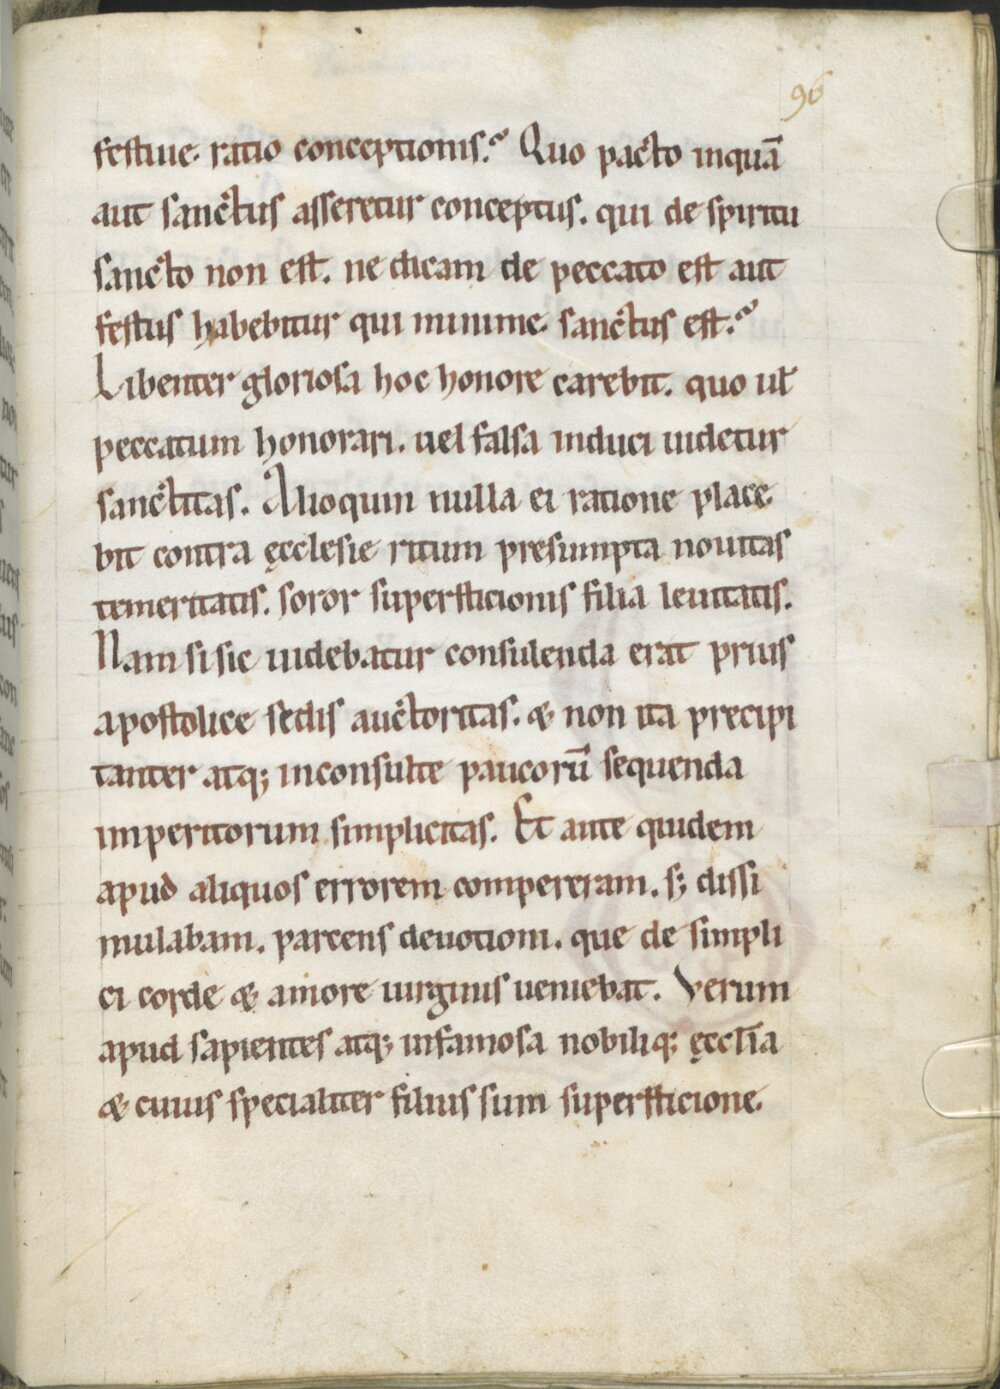 96
festiue. ratio conceptionis? Quo pacto inquā
aut sanctus assereretur conceptus. qui de spiritu
sancto non est. ne dicam de peccato est aut
festus habebitur qui minime. sanctus est?
Libenter gloriosa hoc honore carebit. quo ul̄
peccatum honorari. uel falsa induci uidetur
sanctitas. Alioquin nulla ei ratione place
bit contra ęcclesie ritum presumpta nouitas
temeritatis. soror superstitionis filia leuitatis.
Nam si sic uidebatur consulenda erat prius
apostolice sedis auctoritas. & non ita precipi
tanter atq; inconsulte paucorū sequenda
imperitorum simplicitas. Et ante quidem
apud aliquos errorem compereram. s; dissi
mulabam. parcens deuotioni. que de simpli
ci corde & amore uirginis ueniebat. Verum
apud sapientes atq; infamosa nobiliq; ęccl̄ia
& cuius specialiter filius sum supersticione.